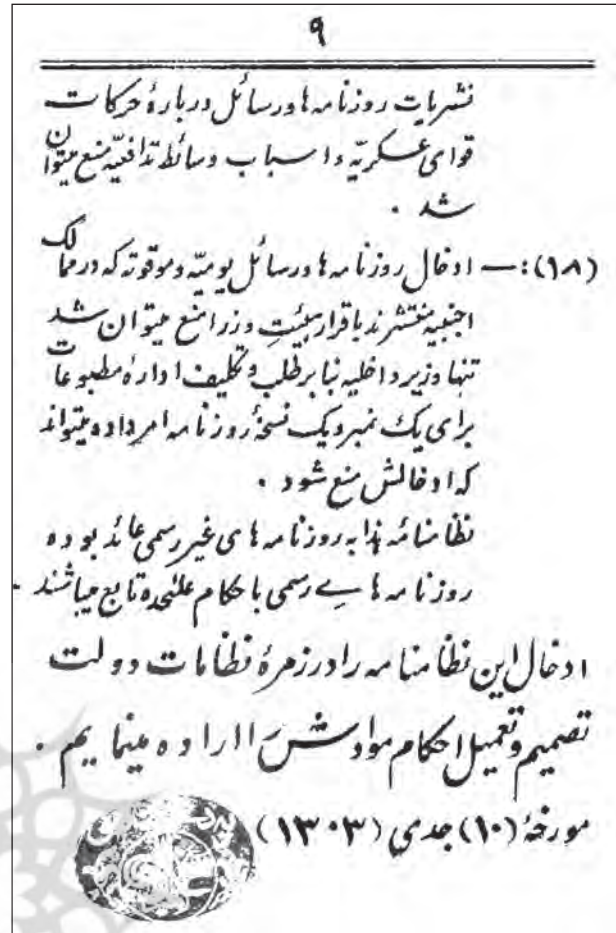 ۹
نشریات روزنامه ها ورسائل دربارهٔ حرکات
قوای عسکریّه واسباب وسائط تدافعیّه منع میتوان
شد .
(۱۸) :— ادخال روزنامه ها ورسائل یومیّه وموقوته که درممالک
اجنبیه منتشرند باقرار هیئیتِ وزرا منع میتوان شد
تنها وزیر داخلیه بنا برطلب وتکلیف ادارهٔ مطبوعات
برای یک نمبر ویک نسخهٔ روزنامه امر داده میتواند
که ادخالش منع شود .
نظامنامهٔ هذا به روزنامه های غیر رسمی عائد بوده
روزنامه ها ے رسمی باحکام علیحده تابع میباشند .
ادخال این نظامنامه را در زمرهٔ نظامات دولت
تصمیم وتعمیل احکام موادش را اراده مینمایم .
مورخهٔ (۱۰) جدی (۱۳۰۳)